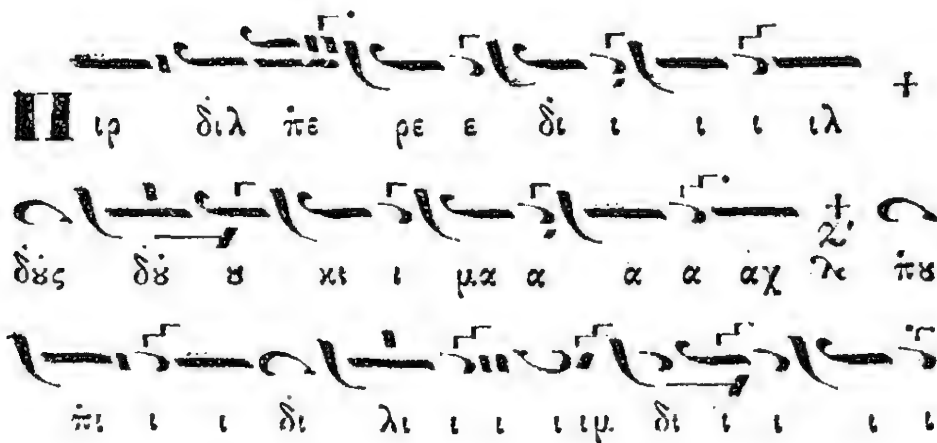 Πιρ δ̇ιλ π̇ε ρε ε δ̇ι ι ι ι ιλ
δ̇ȣ́ς δ̇ȣ́ ȣ κι ι μα α α α αχ λε π̇ȣ
π̇ι ι ι δ̇ι λι ι ι ι ιμ δ̇ι ι ι ι ι